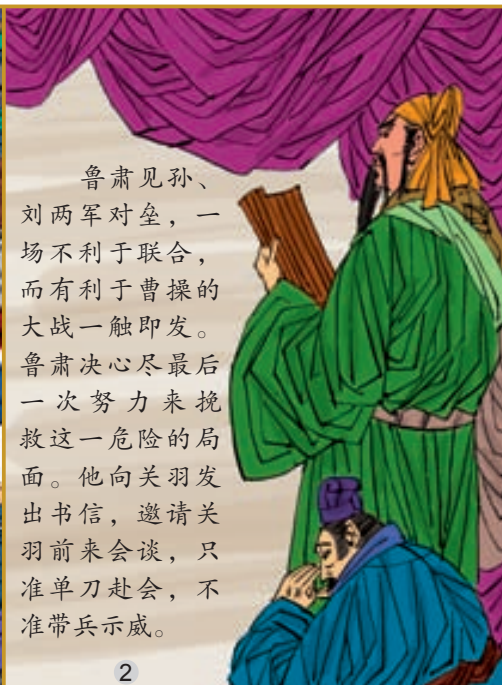 鲁肃见孙、
刘两军对垒，一
场不利于联合，
而有利于曹操的
大战一触即发。
鲁肃决心尽最后
一次努力来挽
救这一危险的局
面。他向关羽发
出书信，邀请关
羽前来会谈，只
准单刀赴会，不
准带兵示威。
2